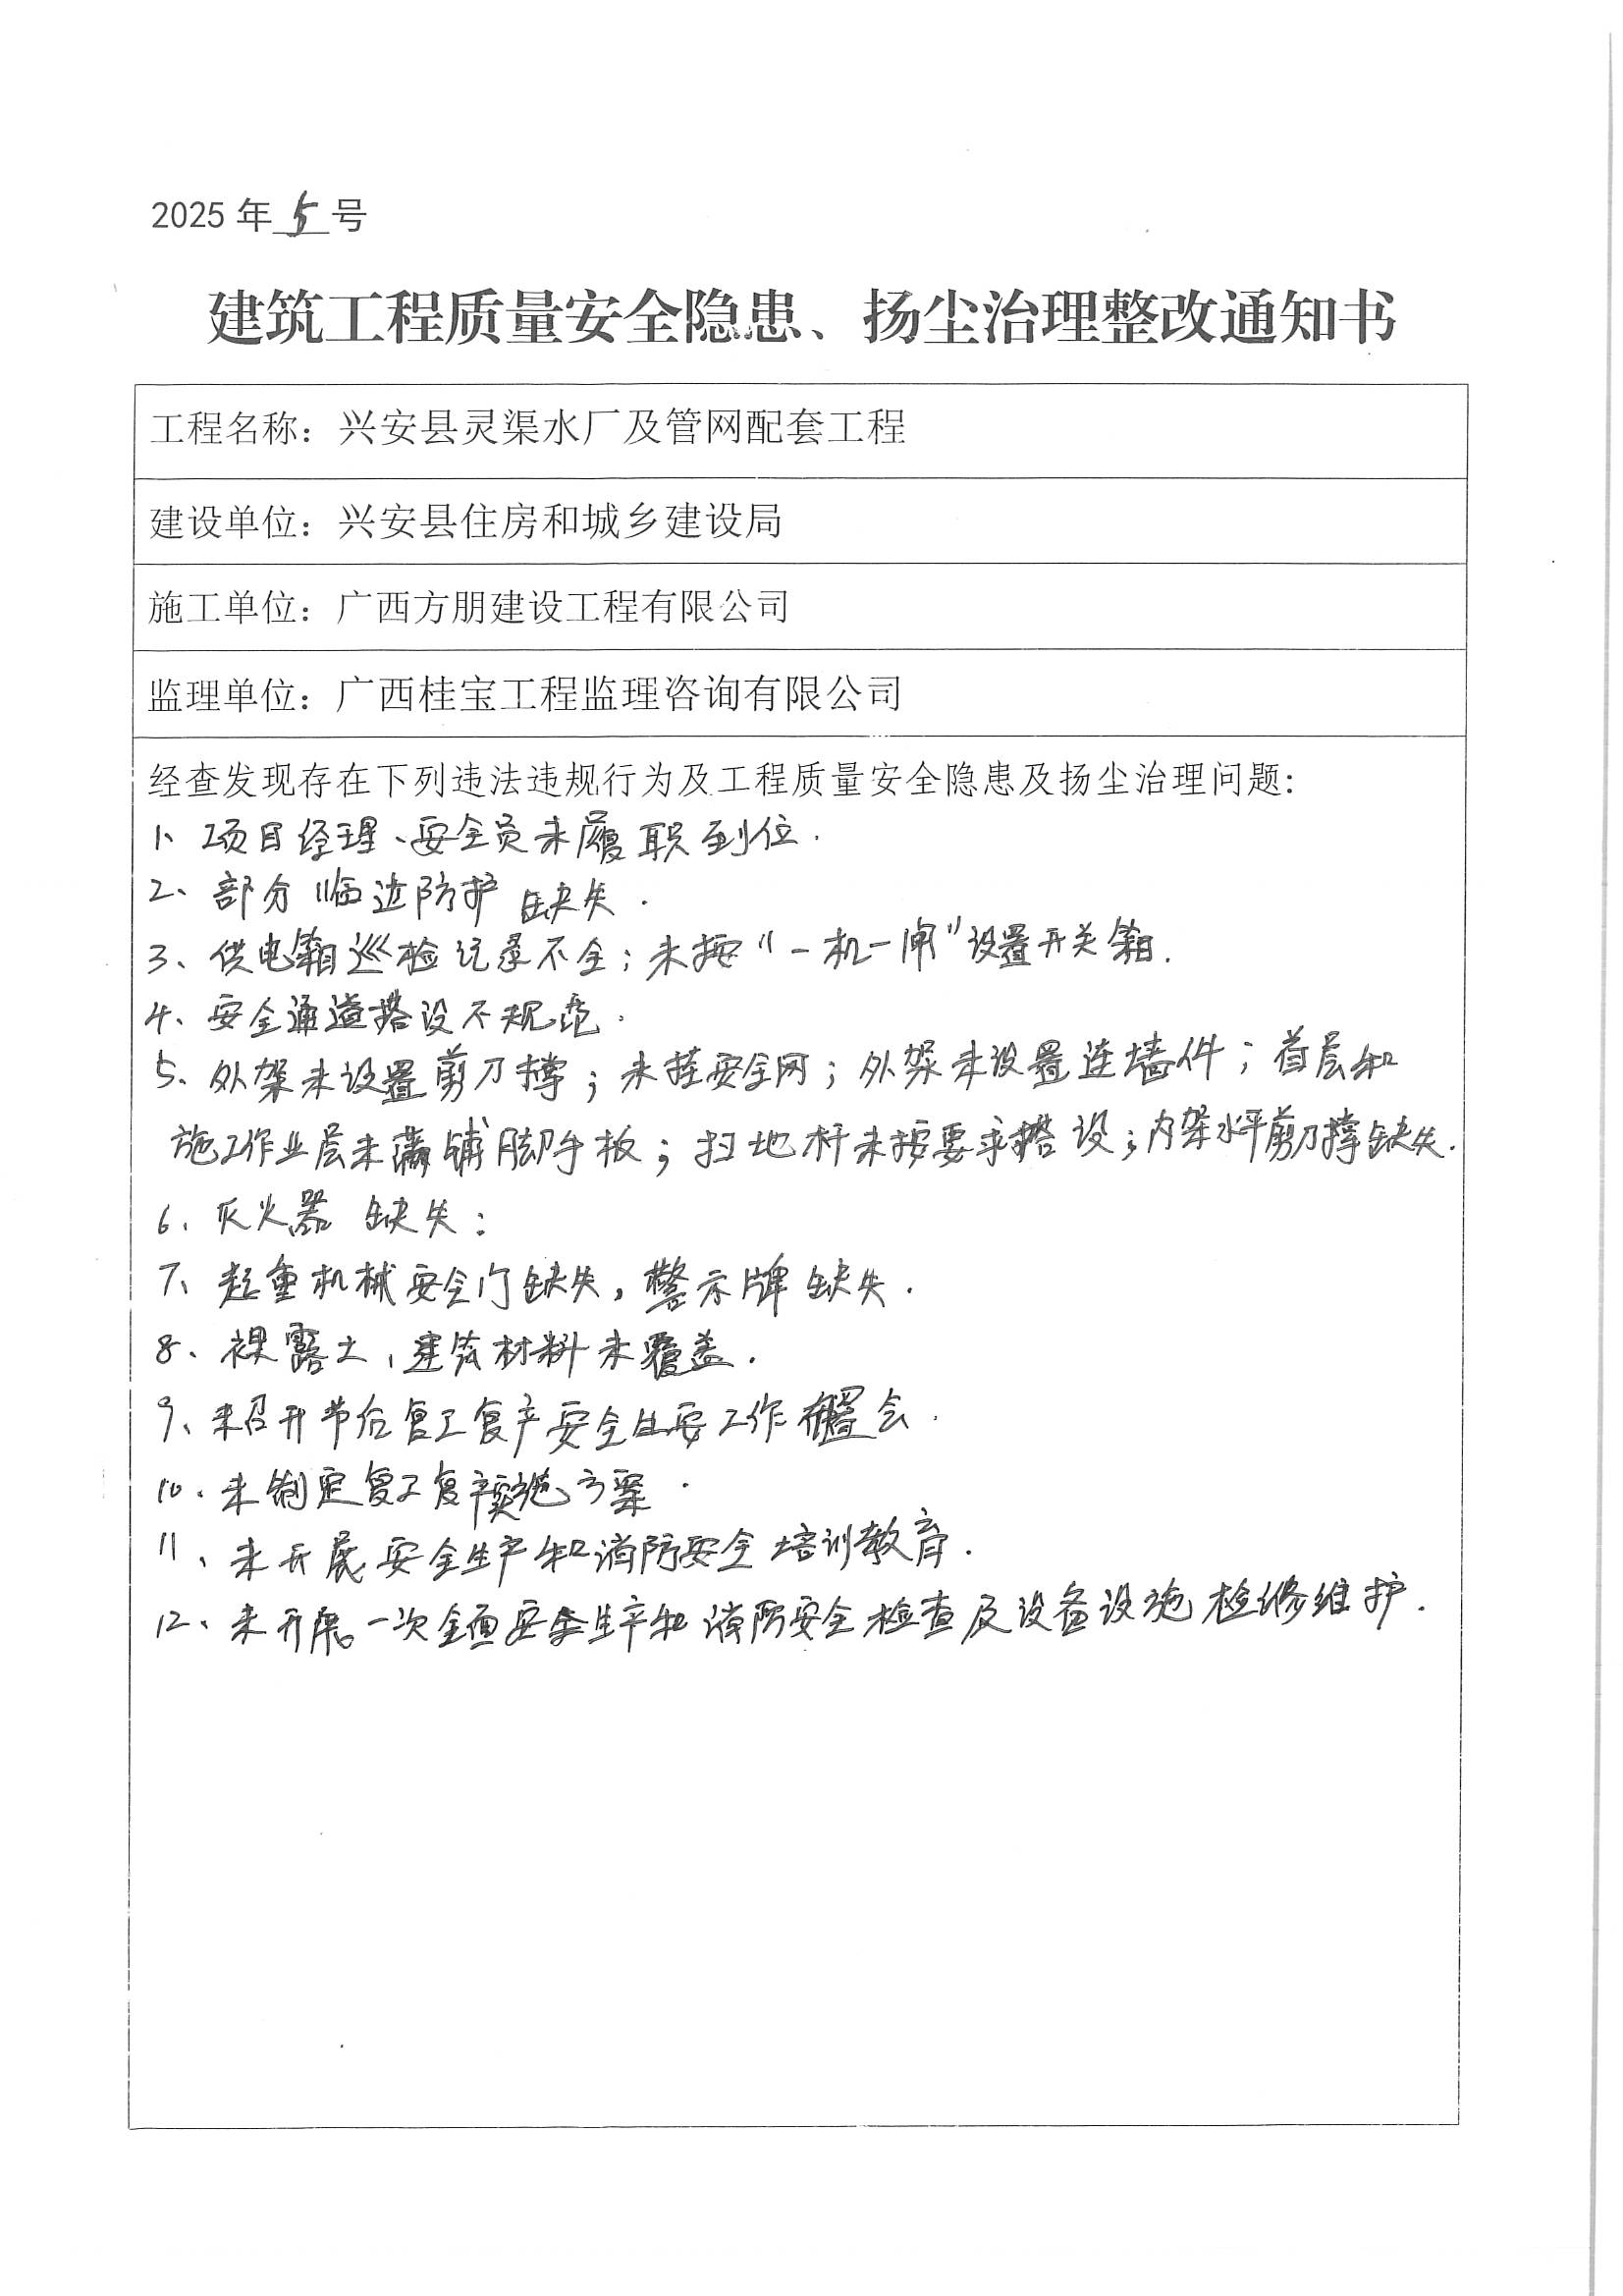 2025年5号
建筑工程质量安全隐患、扬尘治理整改通知书
工程名称：兴安县灵渠水厂及管网配套工程
建设单位：兴安县住房和城乡建设局
施工单位：广西方朋建设工程有限公司
监理单位：广西桂宝工程监理咨询有限公司
经查发现存在下列违法违规行为及工程质量安全隐患及扬尘治理问题：
1、项目经理、安全员未履职到位.
2、部分临边防护缺失.
3、供电箱巡检记录不全；未按“一机一闸”设置开关箱.
4、安全通道搭设不规范.
5、外架未设置剪刀撑；未挂安全网；外架未设置连墙件；首层和
施工作业层未满铺脚手板；扫地杆未按要求搭设；内架水平剪刀撑缺失.
6、灭火器缺失；
7、起重机械安全门缺失，警示牌缺失.
8、裸露土、建筑材料未覆盖.
9、未召开节后复工复产安全工作布置会.
10、未制定复工复产实施方案.
11、未开展安全生产和消防安全培训教育.
12、未开展一次全面安全生产和消防安全检查及设备设施检修维护.